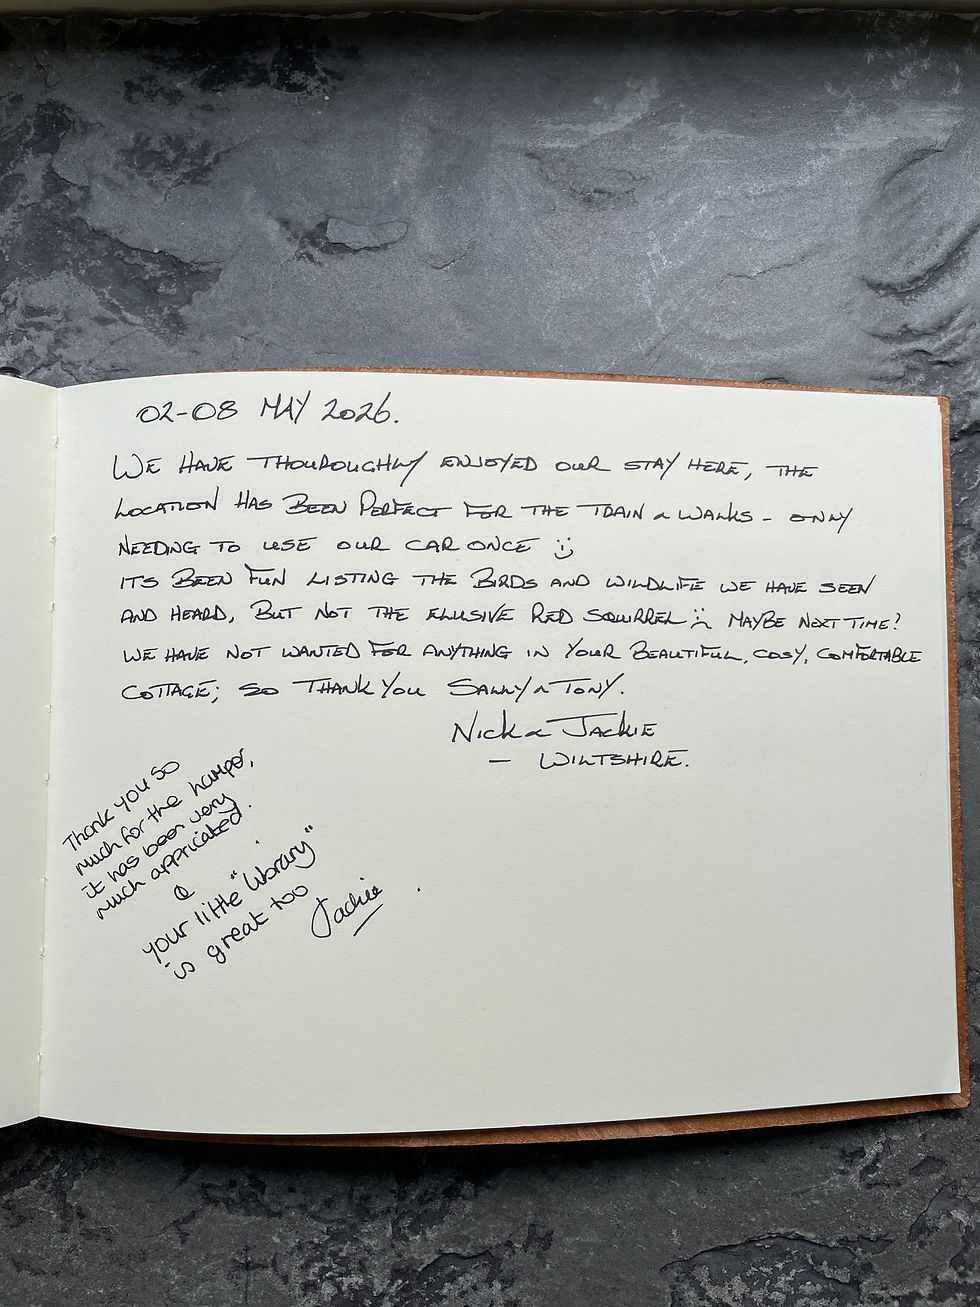 02-08 MAY 2026.
WE HAVE THOUROUGHLY ENJOYED OUR STAY HERE, THE
LOCATION HAS BEEN PERFECT FOR THE TRAIN & WALKS - ONLY
NEEDING TO USE OUR CAR ONCE :)
ITS BEEN FUN LISTING THE BIRDS AND WILDLIFE WE HAVE SEEN
AND HEARD, BUT NOT THE ELUSIVE RED SQUIRREL :( MAYBE NEXT TIME?
WE HAVE NOT WANTED FOR ANYTHING IN YOUR BEAUTIFUL, COSY, COMFORTABLE
COTTAGE; SO THANK YOU SALLY & TONY.
NICK & JACKIE
- WILTSHIRE.
Thank you so
much for the hamper,
it has been very
much appriciated.
&
your little "library"
is great too
Jackie